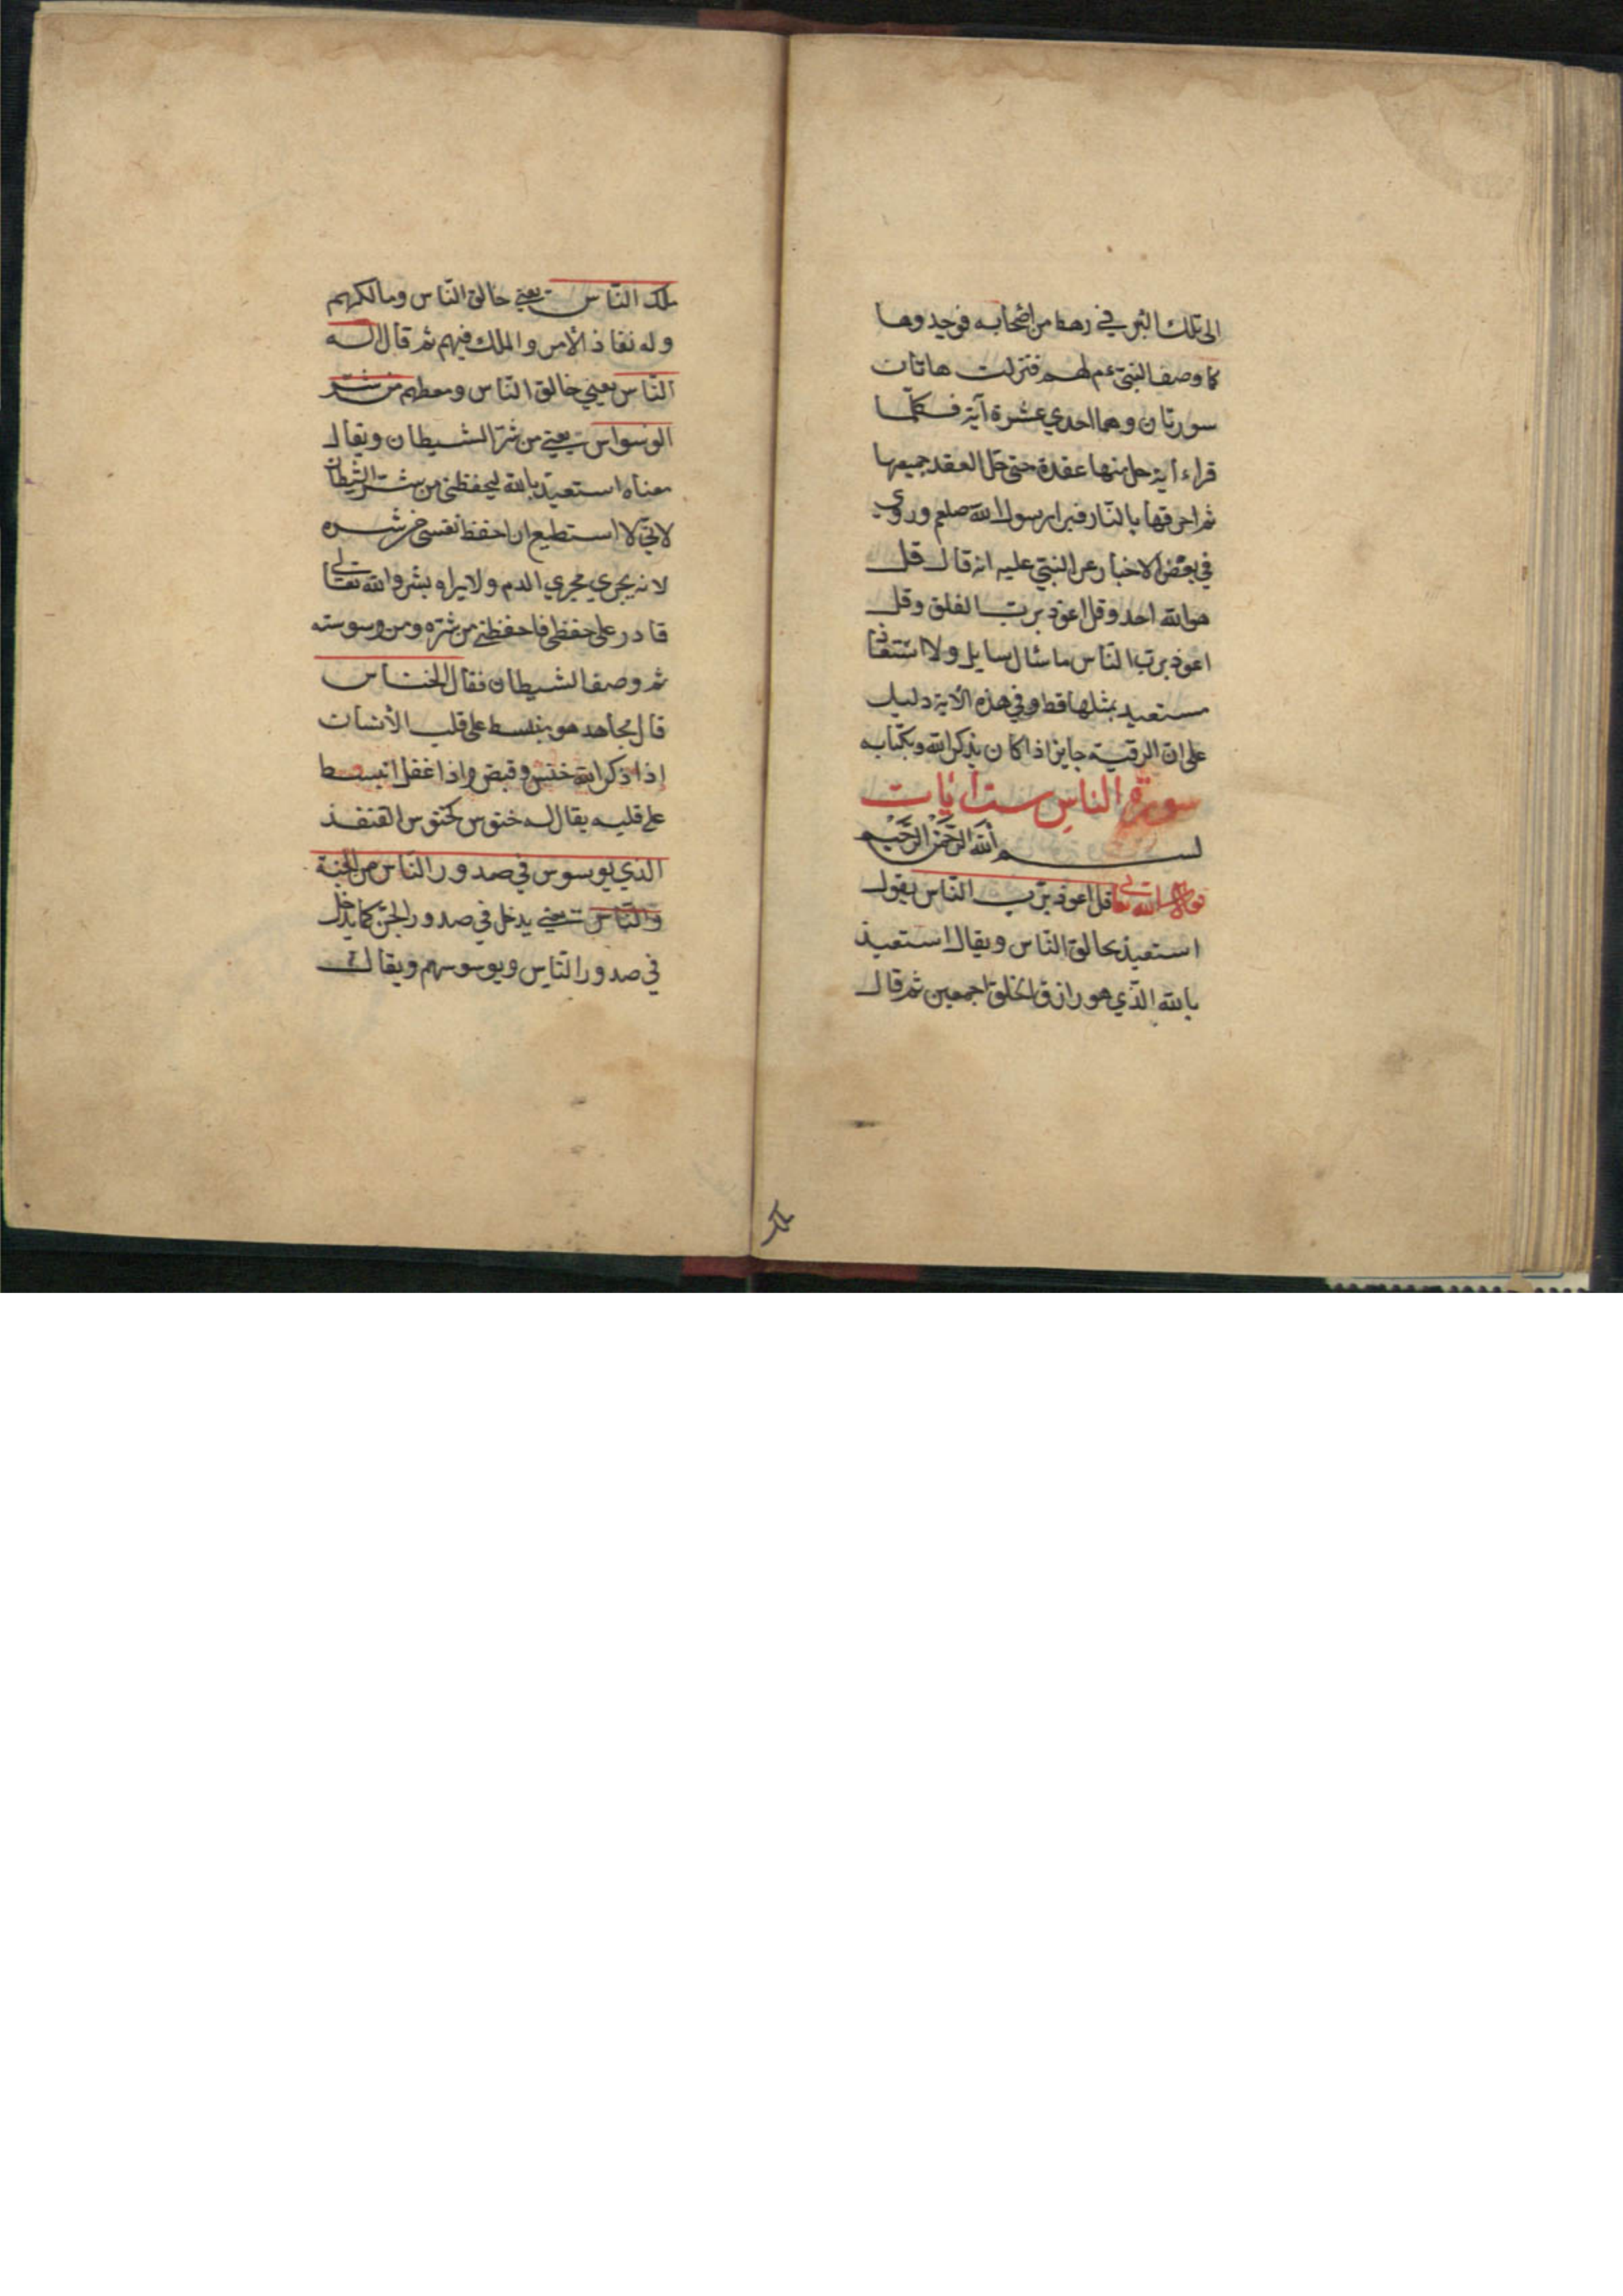 الى تلك البئر في رهط من اصحابه فوجدوها
كما وصف النبي عم لهم فنزلت هاتان
سورتان وهما احدي عشرة آية فكلّما
قراء آية حل منها عقدة حتى حل العقد جميعها
ثم احرقها بالنّار فبرا رسول الله صلعم وروي
في بعض الاخبار عن النبيّ عليه انه قال قل
هو الله احد وقل اعوذ بربّ الفلق وقل
اعوذ بربّ النّاس ما سئال سايل ولا استعاذ
مستعيذ بمثلها قط وفي هذه الآية دليل
على انّ الرقية جايز اذا كان بذكر الله وبكتابه
سورة الناس ست آيات
بسم الله الرّحمن الرّحيم
قوله تعالى قل اعوذ بربّ النّاس يقول
استعيذ بخالق النّاس ويقال استعيذ
بالله الّذي هو رازق الخلق اجمعين ثم قال
ملك النّاس يعني خالق النّاس ومالكهم
وله نفاذ الأمر والملك فيهم ثم قال اله
النّاس يعني خالق النّاس ومعطهم من شرّ
الوسواس يعني من شرّ الشيطان ويقال
معناه استعيذ بالله ليحفظني من شرّ الشيطان
لانّي لا استطيع ان احفظ نفسي من شره
لانه يجري مجري الدم ولا يراه بشر والله تعالى
قادر على حفظي فاحفظني من شرّه ومن وسوسته
ثم وصف الشيطان فقال الخنّاس
قال مجاهد هو ينبسط على قلب الأنسان
إذا ذكر الله خنس وقبض واذا غفل انبسط
على قلبه يقال له خنوس كخنوس القنفذ
الذي يوسوس في صدور النّاس من الجنة
والنّاس يعني يدخل في صدور الجنّ كما يدخل
في صدور النّاس ويوسوسهم ويقال